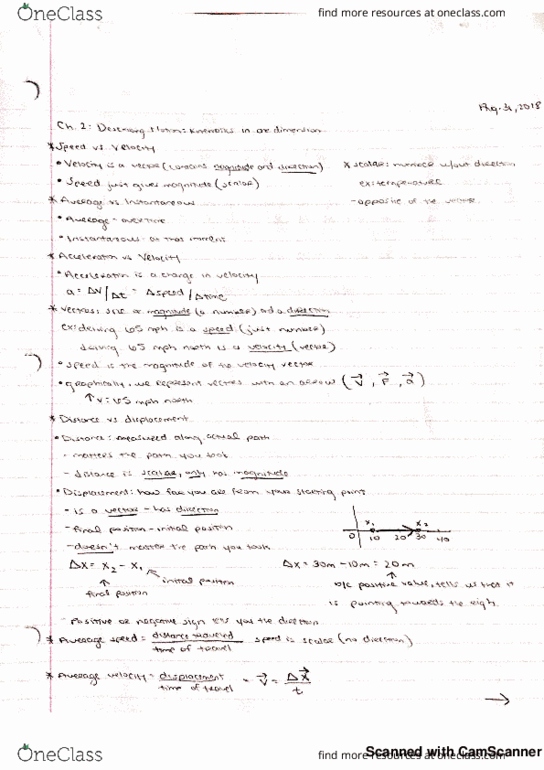 OneClass
find more resources at oneclass.com
Aug. 31, 2018
Ch. 2: Describing Motion: Kinematics in one dimension
* Speed vs. Velocity
• Velocity is a vector (contains magnitude and direction)
* scalar: number w/out direction
• Speed just gives magnitude (scalar)
ex: temperature
- opposite of the vector
* Average vs Instantaneous
• Average - over time
• Instantaneous - at that moment
* Acceleration vs Velocity
• Acceleration is a change in velocity
a = ΔV/Δt = Δspeed/Δtime
* Vectors: size or magnitude (a number) and a direction
ex: driving 65 mph is a speed (just number)
driving 65 mph north is a velocity (vector)
• Speed is the magnitude of the velocity vector
• Graphically, we represent vectors with an arrow (V⃗, F⃗, a⃗)
↑ v = 65 mph north
* Distance vs displacement
• Distance: measured along actual path
• matters the path you took
- distance is scalar, only has magnitude
• Displacement: how far you are from your starting point
- is a vector - has direction
x₁ x₂
- final position - initial position
0 10 20 30 40
- doesn't matter the path you took
ΔX = X₂ - X₁
ΔX = 30m - 10m = 20m
initial position
final position
b/c positive value, tells us that it
is pointing towards the right.
- Positive or negative sign tells you the direction
* Average speed = distance traveled / time of travel speed is scalar (no direction)
* Average velocity = displacement / time of travel = V⃗ = ΔX⃗ / t
→
OneClass
find more resources at oneclass.com
Scanned with CamScanner